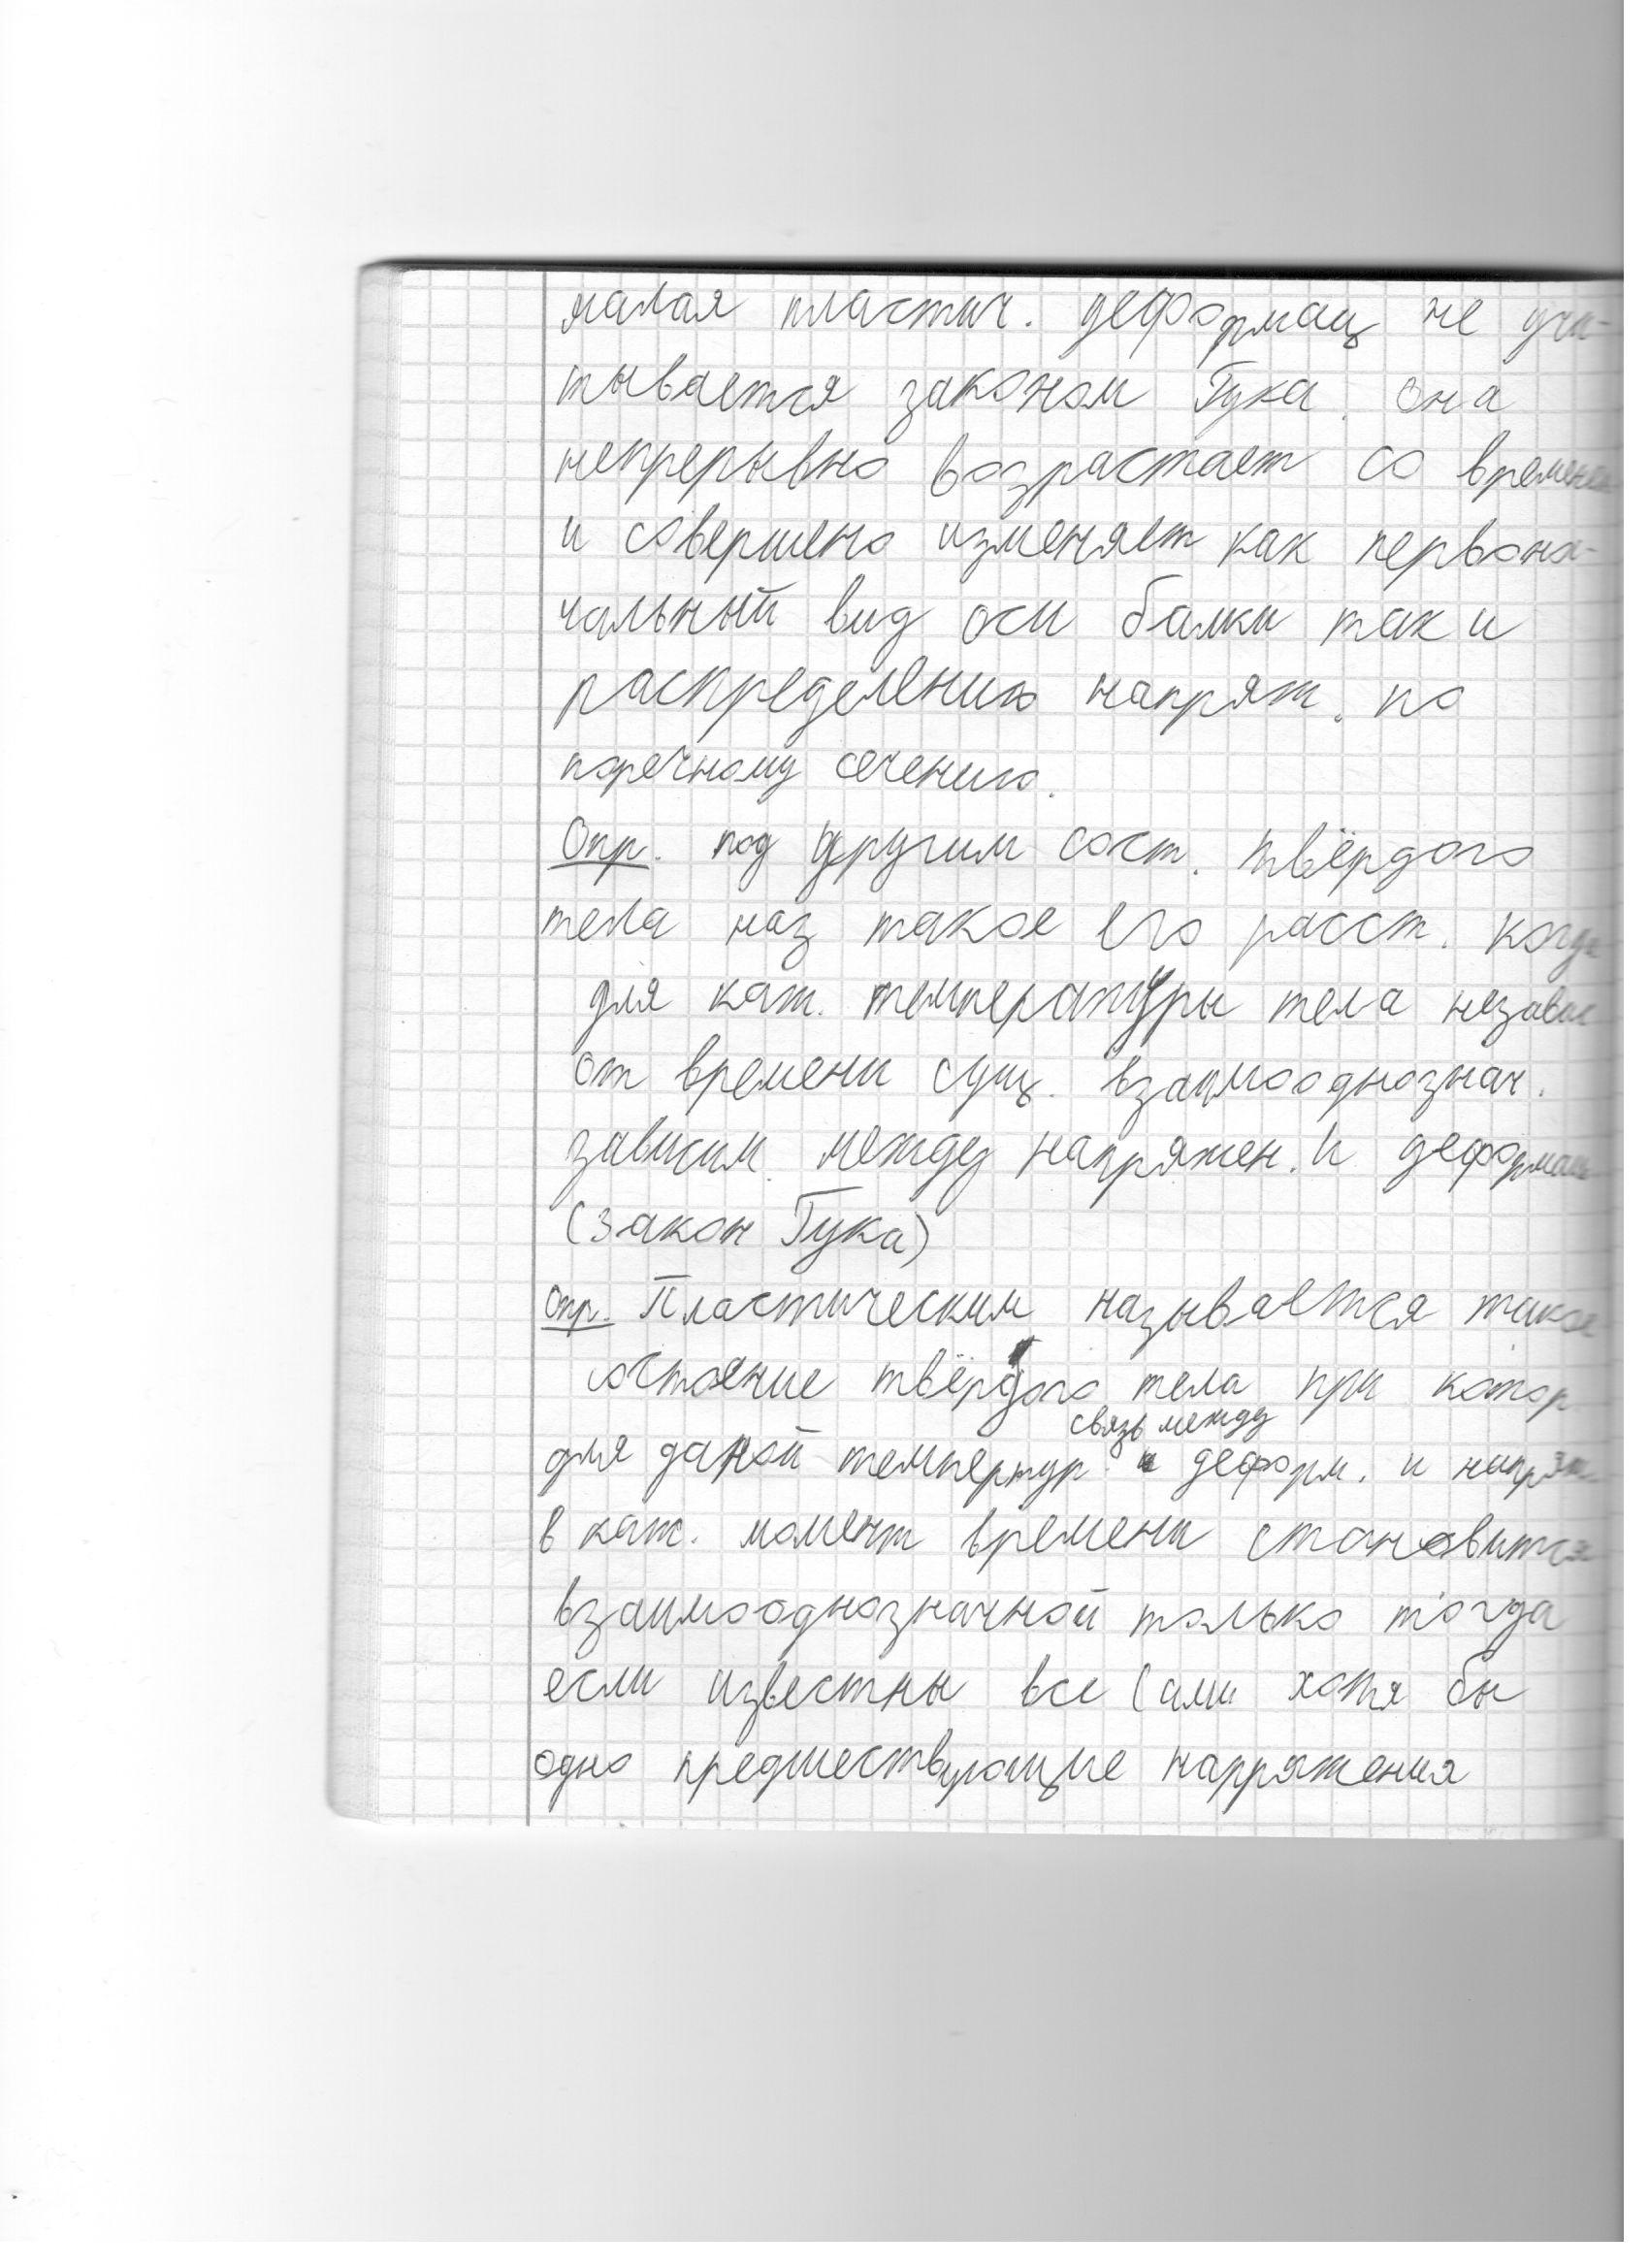 малая пластич. деформац не учи-
тывается законом Гука. Она
непрерывно возрастает со времене
и совершено изменяет как первона-
чальный вид оси балки так и
распределению напряж. по
поречному сечению.
Опр. под упругим сост. твёрдого
тела наз такое его расст. когда
для каж. температуры тела независ
от времени сущ. взаимооднознач.
зависим. между напряжен. и деформац
(Закон Гука)
Опр. Пластическим называется такое
состояние твёрдого тела при котор
связь между
для даной темпертур. деформ. и напряж
в каж. момент времени становится
взаимооднозначной только тогда
если известны все (или хотя бы
одно предшествующие напряжения